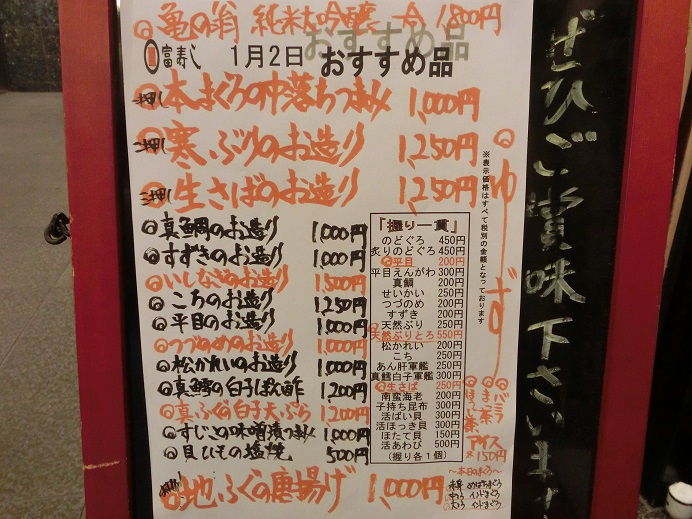 ◎亀の翁 純米大吟醸 一合 1,800円
富寿し 1月2日 おすすめ品
一押し ◎本まぐろの中落ちつまみ 1,000円
二押し ◎寒ぶりのお造り 1,250円
三押し ◎生さばのお造り 1,250円
◎真鯛のお造り 1,000円
◎すずきのお造り 1,000円
◎いしなぎのお造り 1,500円
◎こちのお造り 1,250円
◎平目のお造り 1,000円
◎つづめのお造り 1,000円
◎松かれいのお造り 1,000円
◎真鱈の白子ぽん酢 1,200円
◎真ふぐの白子天ぷら 1,200円
◎すじこの味噌漬つまみ 1,000円
◎貝ひもの塩焼 500円
◎地ふぐの唐揚げ 1,000円
「握り一貫」
のどぐろ 450円
炙りのどぐろ 450円
◎平目 200円
平目えんがわ 300円
真鯛 200円
せいかい 250円
つづのめ 200円
すずき 200円
◎天然ぶり 250円
天然ぶりとろ 550円
松かれい 200円
こち 250円
あん肝軍艦 300円
真鱈白子軍艦 300円
◎生さば 250円
南蛮海老 200円
子持ち昆布 300円
活ばい貝 300円
活ほっき貝 300円
ほたて貝 150円
活あわび 500円
(握り各1個)
※表示価格はすべて税別の金額となっております
◎ゆず
バニラ
まっ茶
ほうじ茶
アイス
150円
〜本日のまぐろ〜
赤身 めばちまぐろ
中とろ インドまぐろ
大とろ インドまぐろ
ぜひご賞味下さいませ